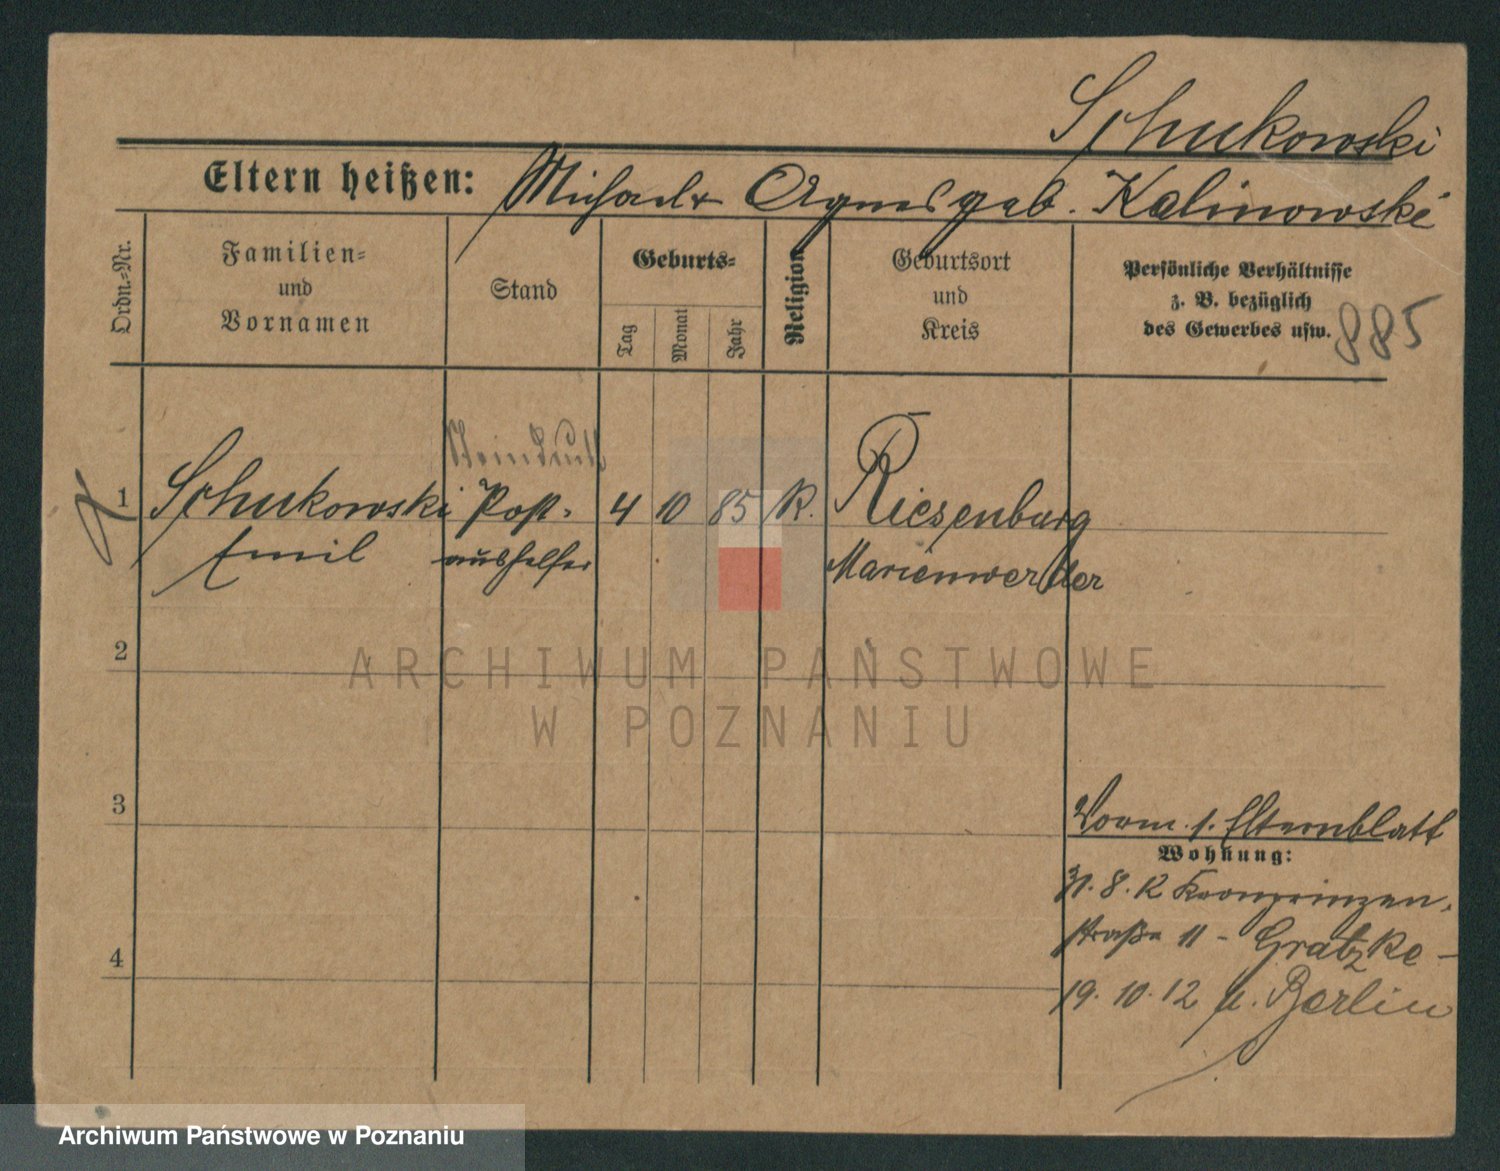 Schukowski
Eltern heißen: Michael u Agnes geb. Kalinowski
Ordn.-Nr.
Familien-
und
Vornamen
Stand
Geburts-
Tag
Monat
Jahr
Religion
Geburtsort
und
Kreis
Persönliche Verhältnisse
z. B. bezüglich
des Gewerbes usw.
885
1 Schukowski Post- 4 10 85 K. Riesenburg
Emil aushelfer Marienwerder
2
ARCHIWUM PAŃSTWOWE
W POZNANIU
3
Vorm. s. Elternblatt
Wohnung:
31. 8. 12 Kronprinzen-
straße 11 - Gratzke -
4
19. 10. 12 n. Berlin
Archiwum Państwowe w Poznaniu